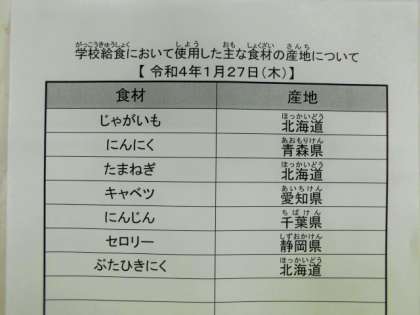 学校給食において使用した主な食材の産地について
【 令和4年1月27日(木)】
食材 産地
じゃがいも 北海道
にんにく 青森県
たまねぎ 北海道
キャベツ 愛知県
にんじん 千葉県
セロリー 静岡県
ぶたひきにく 北海道